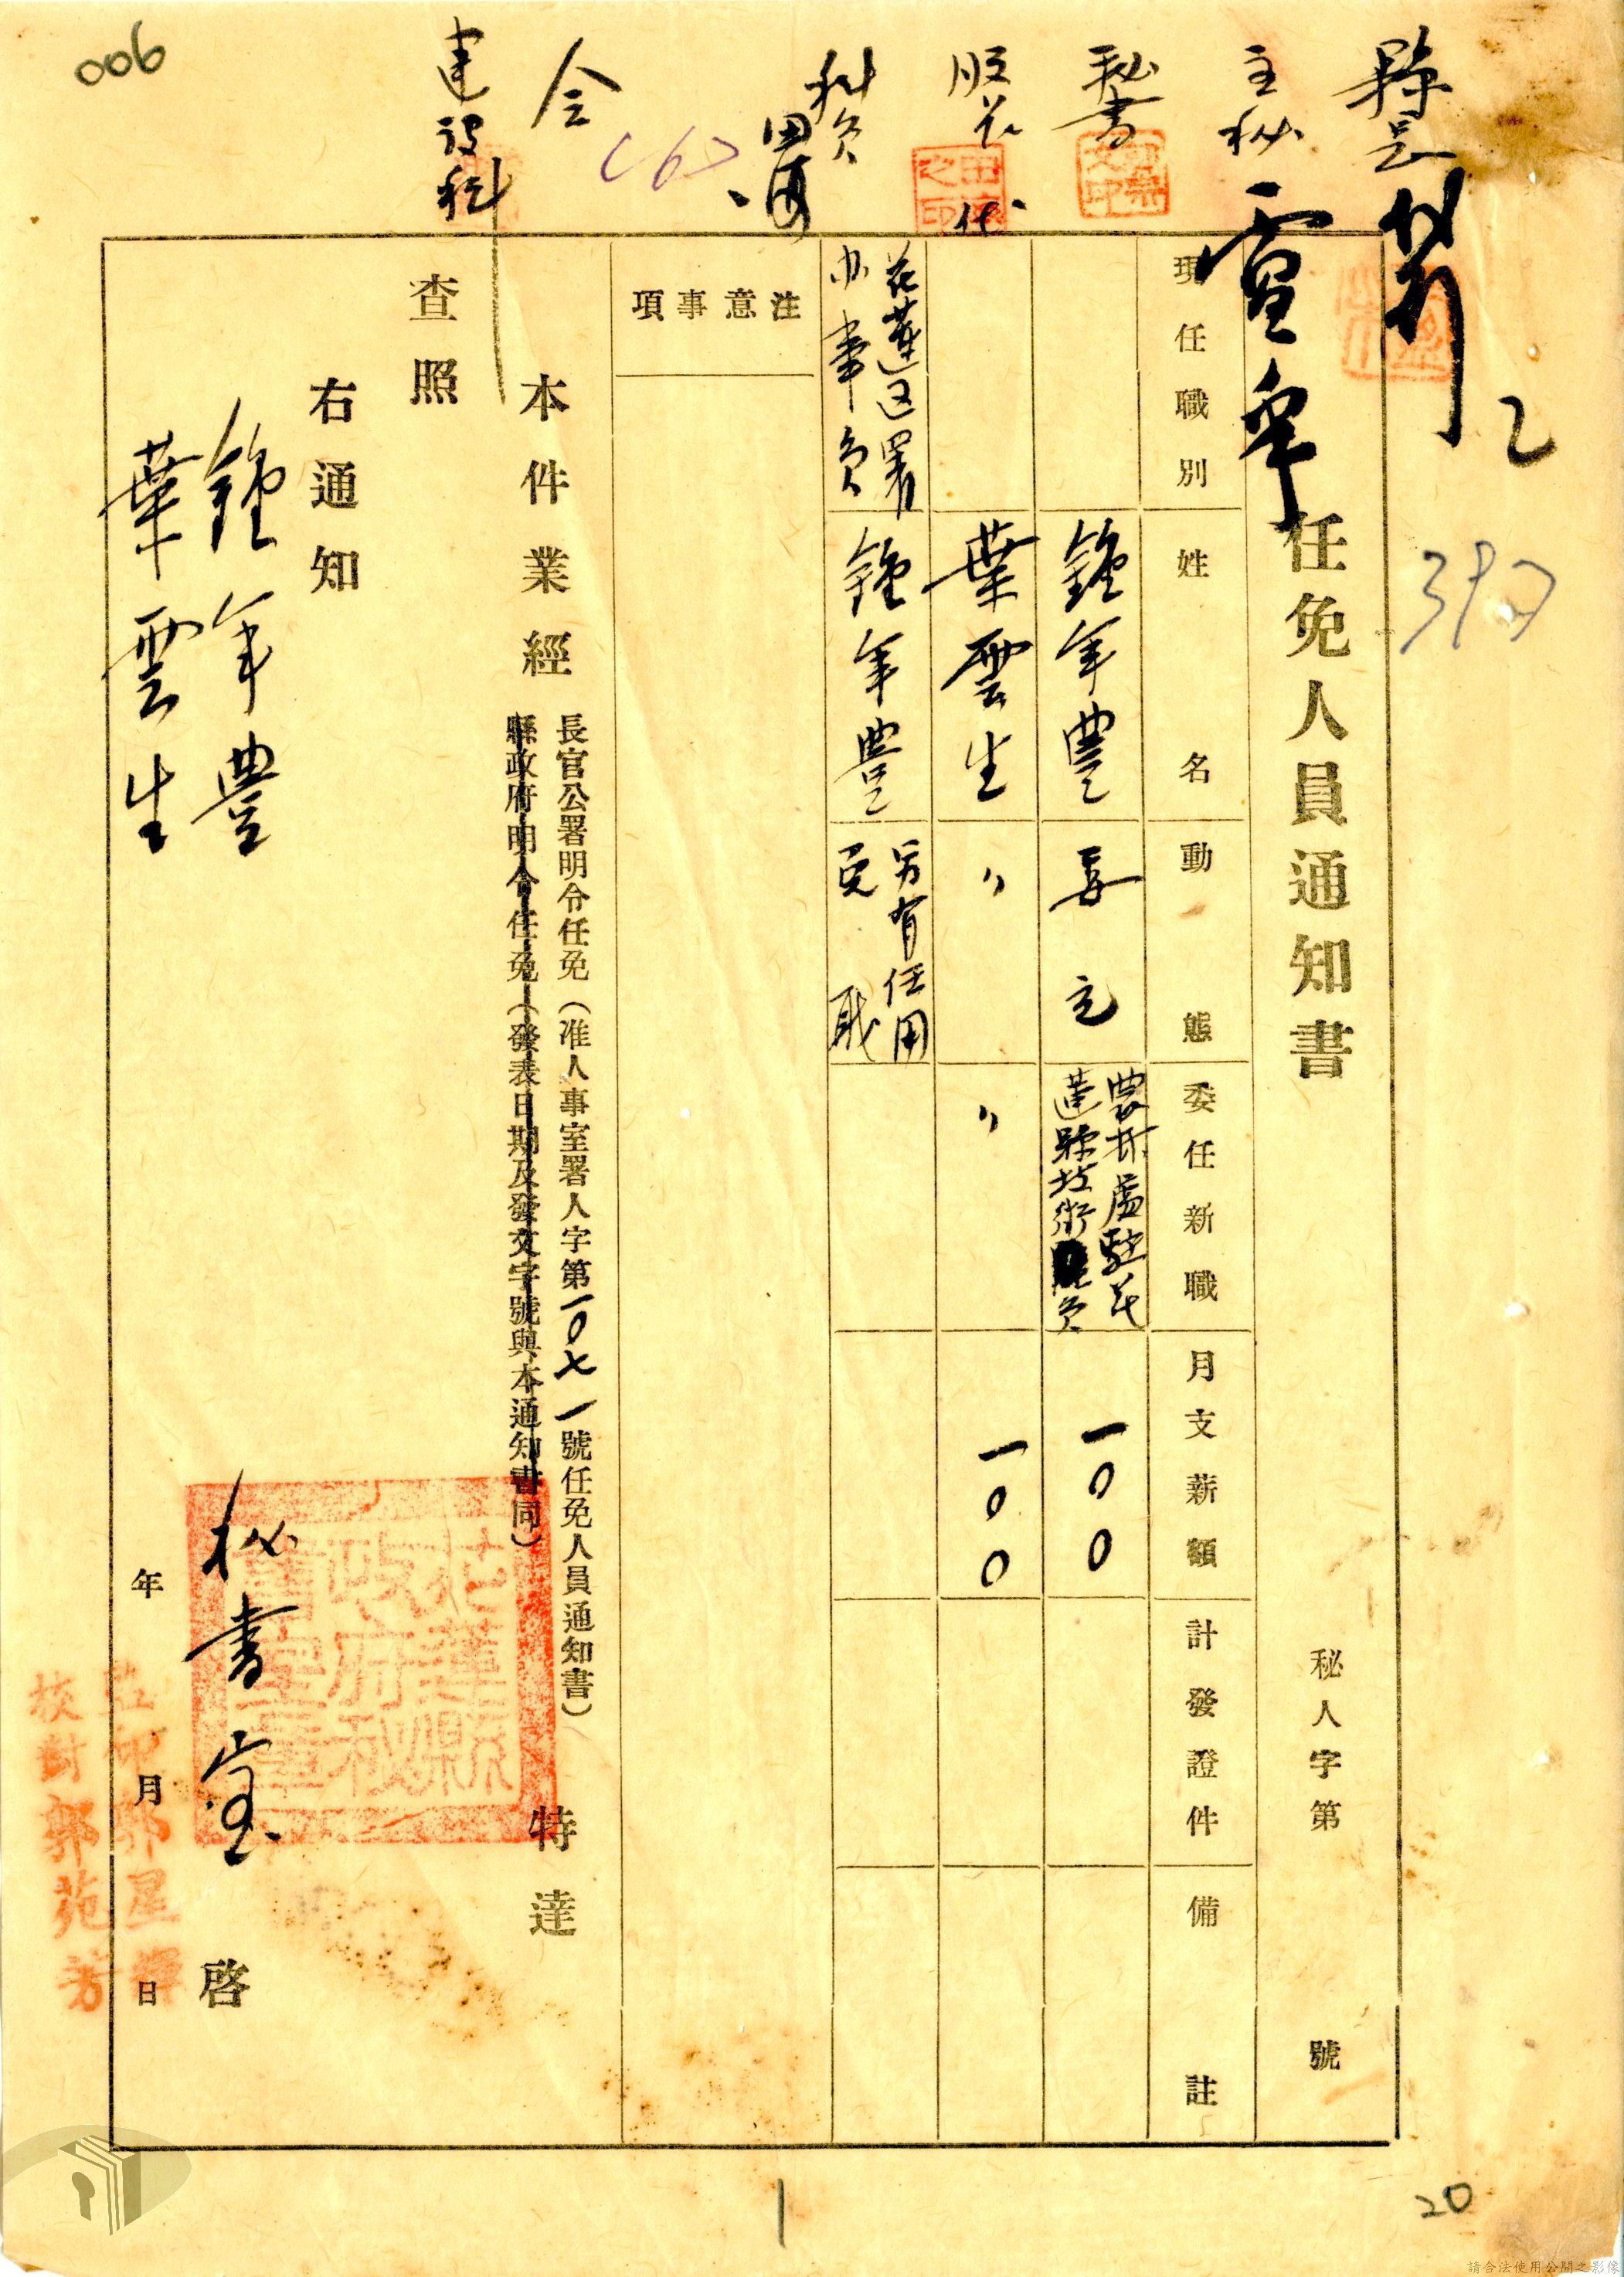 006
縣長
主秘
秘書
股長 代
科員
令
建設科
任免人員通知書
秘人字第 號
現任職別 姓名 動態 委任新職 月支薪額 計發證件 備註
鍾年豐 委充 農林處駐花蓮縣技術員 一〇〇
葉雲生 〃 〃 一〇〇
花蓮区署办事員 鍾年豐 另有任用免職
注意事項
本件業經
長官公署明令任免（准人事室署人字第一〇七一號任免人員通知書）
縣政府明令任免（發表日期及發文字號與本通知書同）
特達
查照
右通知
鍾年豐
葉雲生
秘書室 啓
花蓮縣政府秘書室章
年 月 日
監印郭星輝
校對郭苑芳
20
請合法使用公開之影像